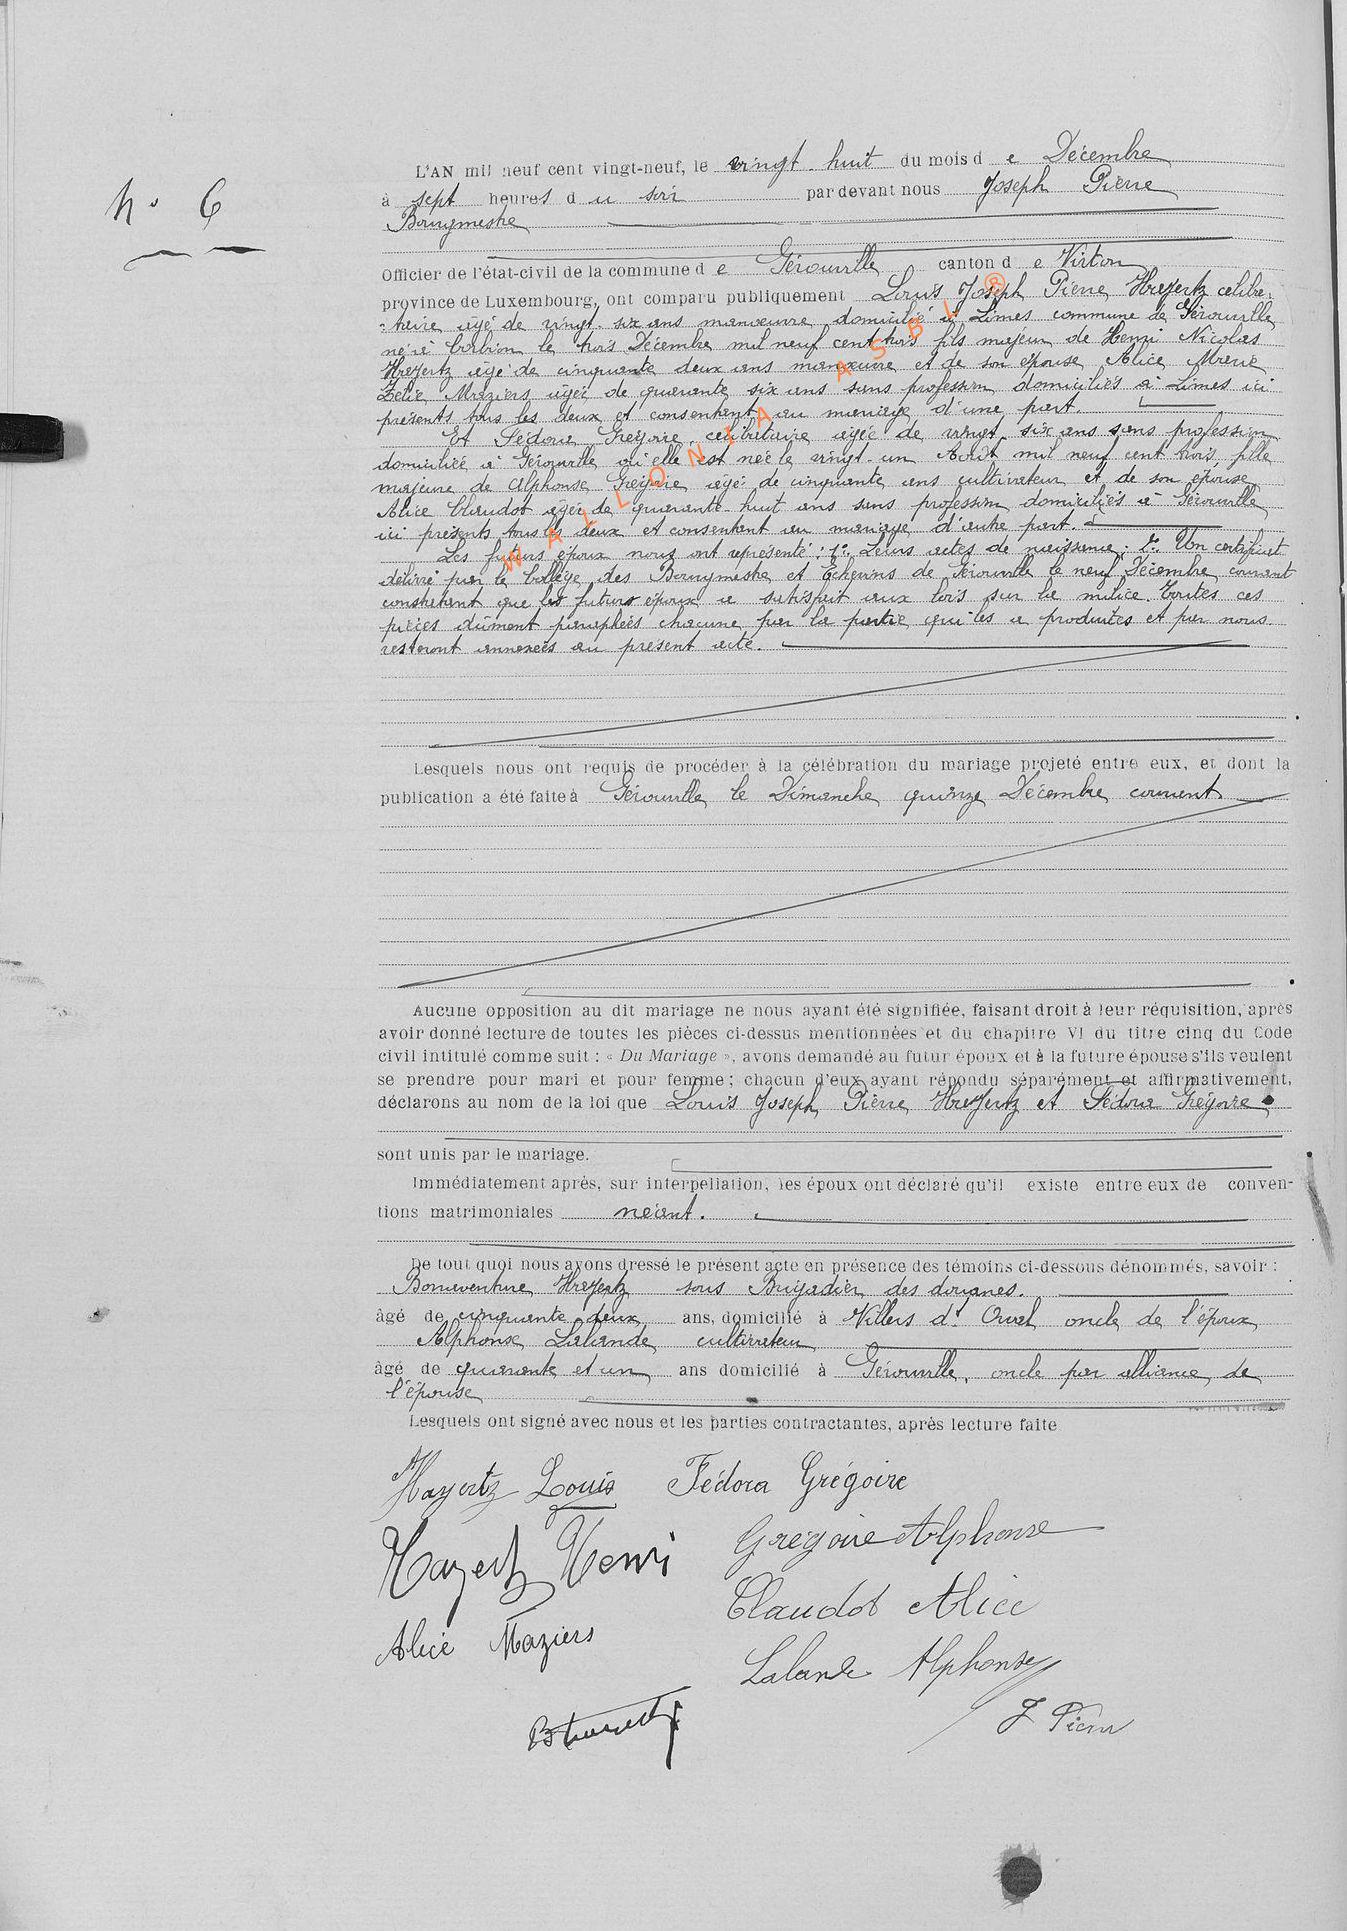 N° 6
L'AN mil neuf cent vingt-neuf, le vingt-huit du mois d e Décembre
à sept heures d u soir par devant nous Joseph Pierre
Bourgmestre
Officier de l'état-civil de la commune d e Gérouville canton d e Virton
province de Luxembourg, ont comparu publiquement Louis Joseph Pierre Hayertz céliba-
taire âgé de vingt-six ans manœuvre domicilié à Limes commune de Gérouville
né à Corbion le trois Décembre mil neuf cent trois fils majeur de Henri Nicolas
Hayertz âgé de cinquante deux ans manœuvre et de son épouse Alice Marie
Zélie Maziers âgée de quarante six ans sans profession domiciliés à Limes ici
présents tous les deux et consentant au mariage d'une part.
Et Fédora Grégoire célibataire âgée de vingt-six ans sans profession
domiciliée à Gérouville où elle est née le vingt-un Août mil neuf cent trois, fille
majeure de Alphonse Grégoire âgé de cinquante ans cultivateur et de son épouse
Alice Claudot âgée de quarante-huit ans sans profession domiciliés à Gérouville
ici présents tous les deux et consentant au mariage d'autre part.
Les futurs époux nous ont représenté : 1° Leurs actes de naissance ; 2° Un certificat
délivré par le Collège des Bourgmestre et Echevins de Gérouville le neuf Décembre courant
constatant que les futurs époux a satisfait aux lois sur la milice. Toutes ces
pièces dûment paraphées chacune par la partie qui les a produites et par nous
resteront annexées au présent acte.
Lesquels nous ont requis de procéder à la célébration du mariage projeté entre eux, et dont la
publication a été faite à Gérouville le Dimanche quinze Décembre courant
Aucune opposition au dit mariage ne nous ayant été signifiée, faisant droit à leur réquisition, après
avoir donné lecture de toutes les pièces ci-dessus mentionnées et du chapitre VI du titre cinq du Code
civil intitulé comme suit : « Du Mariage », avons demandé au futur époux et à la future épouse s'ils veulent
se prendre pour mari et pour femme ; chacun d'eux ayant répondu séparément et affirmativement,
déclarons au nom de la loi que Louis Joseph Pierre Hayertz et Fédora Grégoire
sont unis par le mariage.
Immédiatement après, sur interpellation, les époux ont déclaré qu'il existe entre eux de conven-
tions matrimoniales néant.
De tout quoi nous avons dressé le présent acte en présence des témoins ci-dessous dénommés, savoir :
Bonaventure Hayertz sous Brigadier des douanes.
âgé de cinquante deux ans, domicilié à Villers d^t Orval oncle de l'époux
Alphonse Lalande cultivateur
âgé de quarante et un ans domicilié à Gérouville, oncle par alliance de
l'épouse
Lesquels ont signé avec nous et les parties contractantes, après lecture faite
Hayertz Louis Fédora Grégoire
Hayertz Henri Grégoire Alphonse
Claudot Alice
Alice Maziers
Lalande Alphonse
J Pierre
WALLONIA ASBL ®